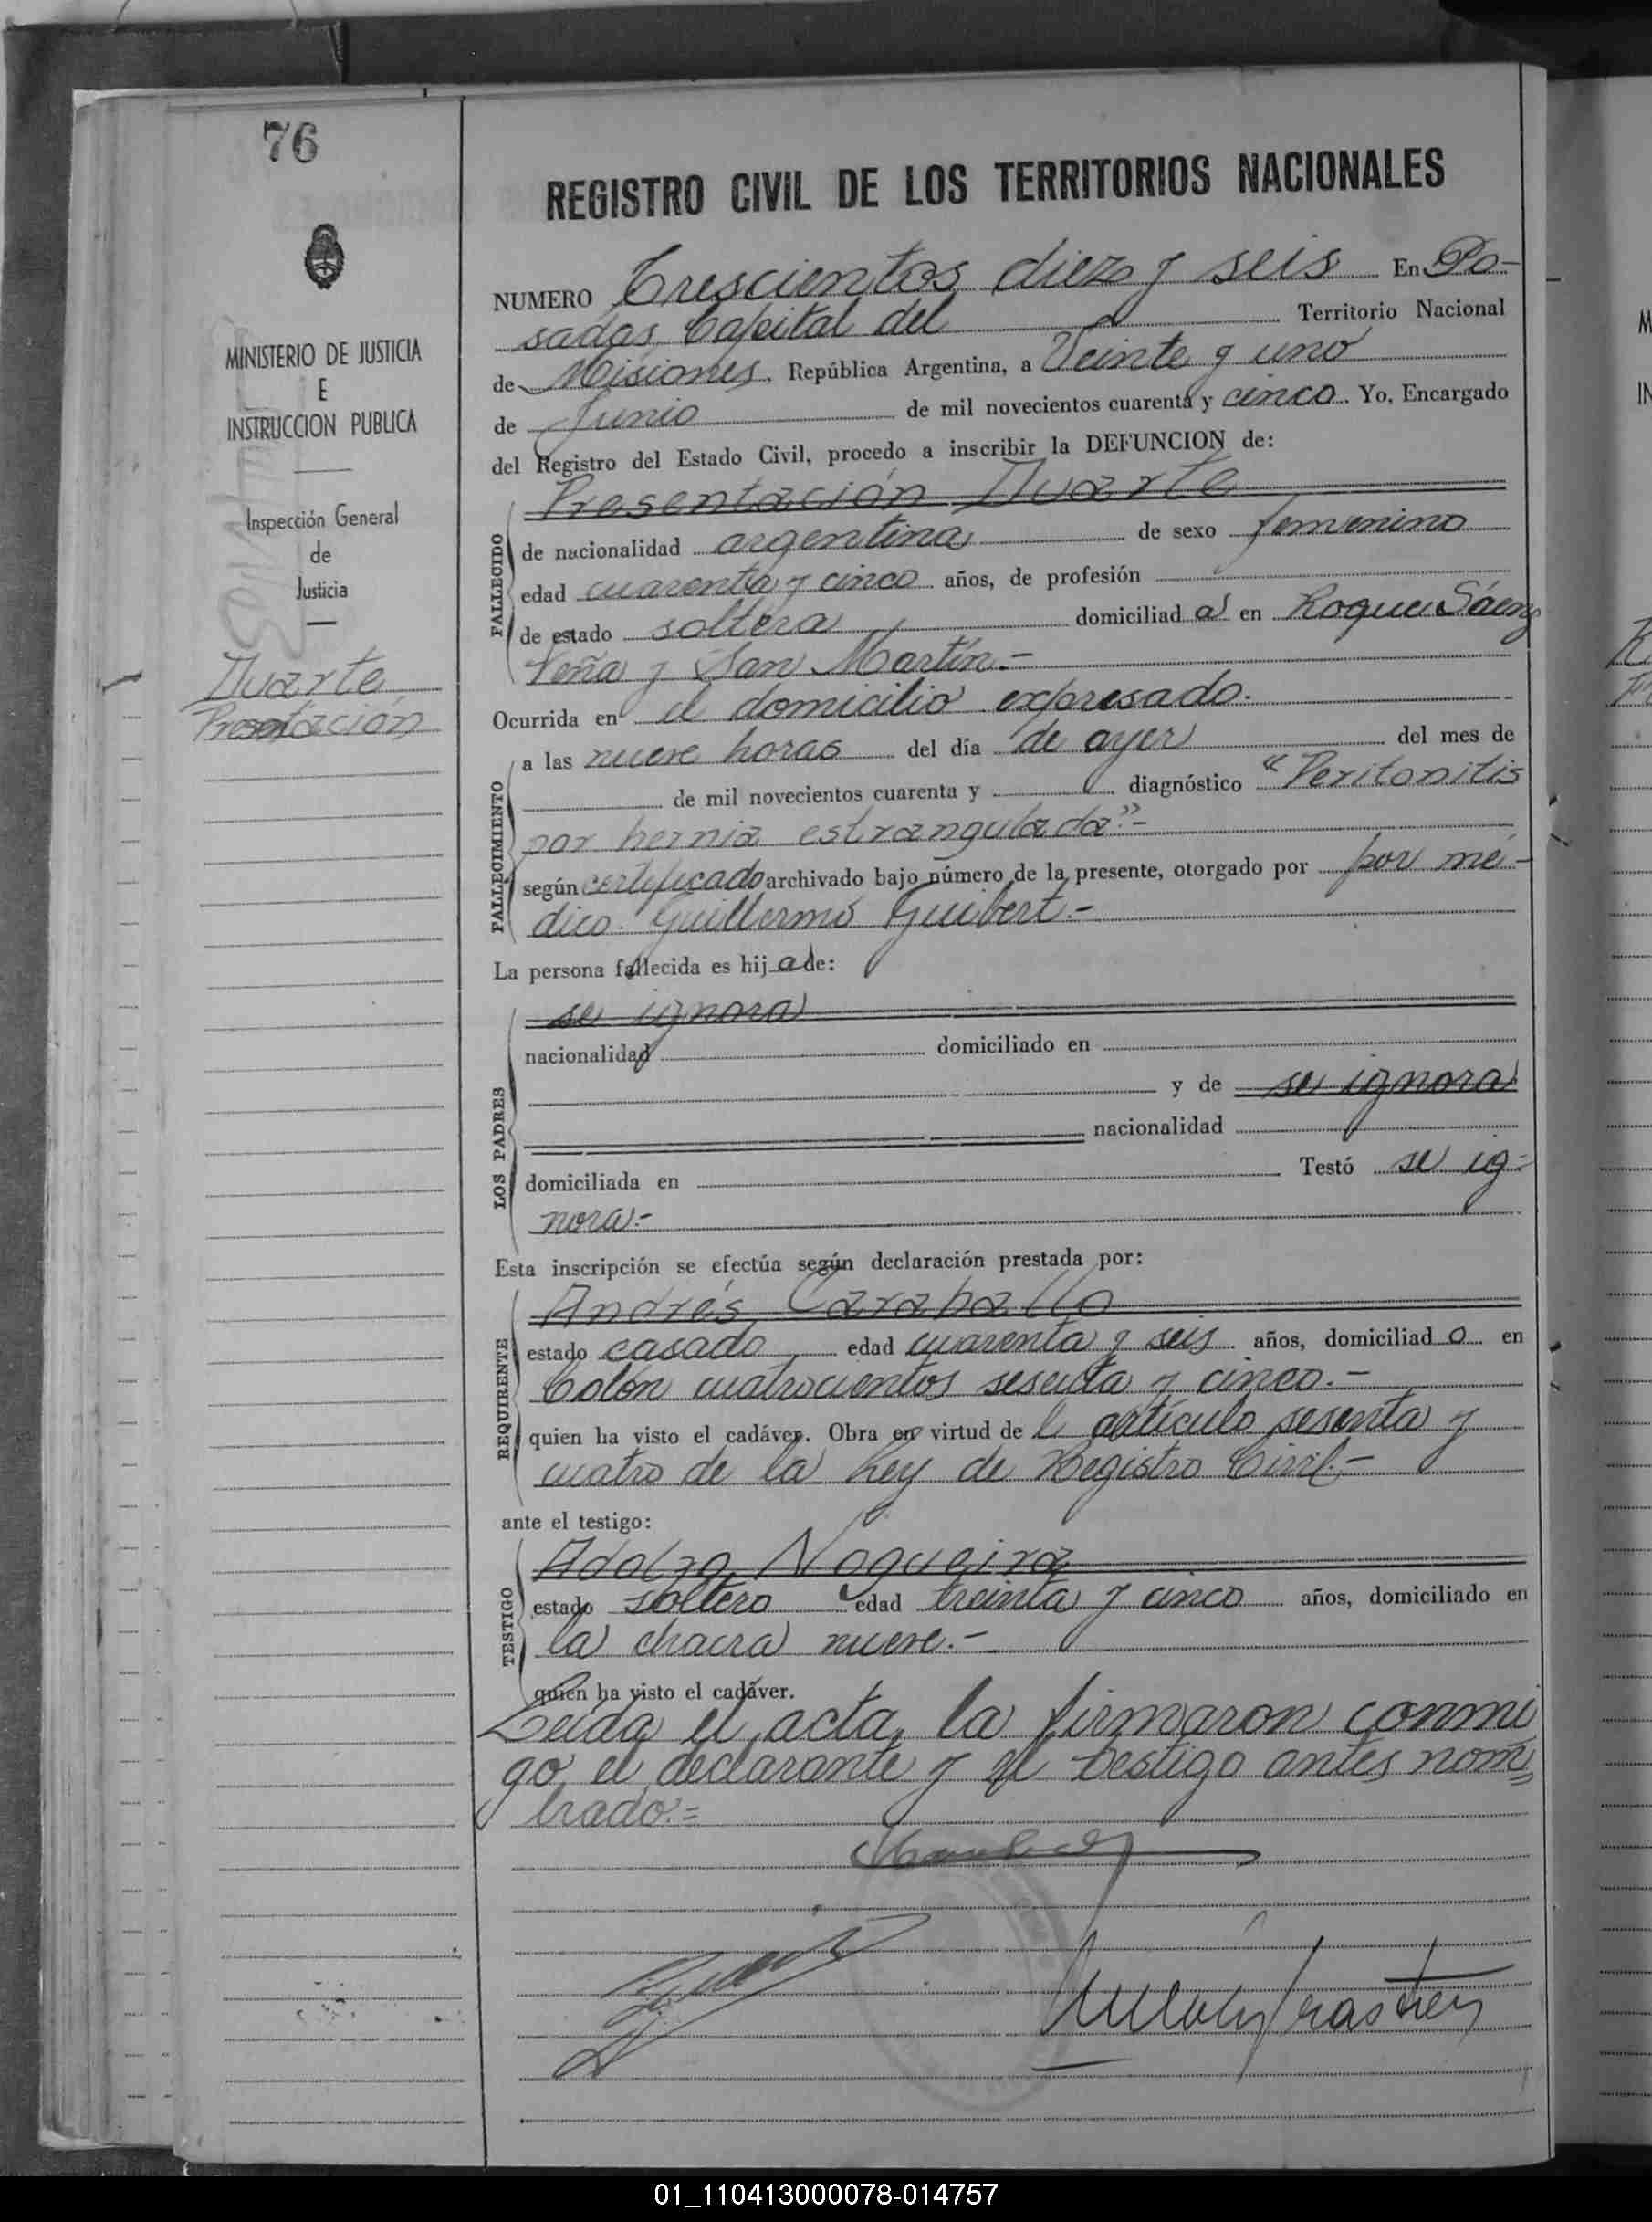 76
MINISTERIO DE JUSTICIA
E
INSTRUCCION PUBLICA
Inspección General
de
Justicia
Duarte
Presentación
REGISTRO CIVIL DE LOS TERRITORIOS NACIONALES
NUMERO Trescientos diez y seis En Po-
sadas, Capital del Territorio Nacional
de Misiones, República Argentina, a Veinte y uno
de Junio de mil novecientos cuarenta y cinco. Yo, Encargado
del Registro del Estado Civil, procedo a inscribir la DEFUNCION de:
Presentación Duarte
FALLECIDO
de nacionalidad argentina de sexo femenino
edad cuarenta y cinco años, de profesión
de estado soltera domiciliad a en Roque Sáenz
Peña y San Martín.-
Ocurrida en el domicilio expresado.
a las nueve horas del día de ayer del mes de
FALLECIMIENTO
de mil novecientos cuarenta y diagnóstico "Peritonitis
por hernia estrangulada".-
según certificado archivado bajo número de la presente, otorgado por por mé-
dico Guillermo Guibert.-
La persona fallecida es hij a de:
se ignora
LOS PADRES
nacionalidad domiciliado en
y de se ignora
nacionalidad
domiciliada en Testó se ig-
nora.-
Esta inscripción se efectúa según declaración prestada por:
Andrés Caraballo
REQUIRENTE
estado casado edad cuarenta y seis años, domiciliad o en
Colón cuatrocientos sesenta y cinco.-
quien ha visto el cadáver. Obra en virtud de l artículo sesenta y
cuatro de la Ley de Registro Civil.-
ante el testigo:
Adolfo Nogueira
TESTIGO
estado soltero edad treinta y cinco años, domiciliado en
la chacra nueve.-
quien ha visto el cadáver.
Leída el acta, la firmaron conmi
go el declarante y el testigo antes nom=
brado.=
01_110413000078-014757